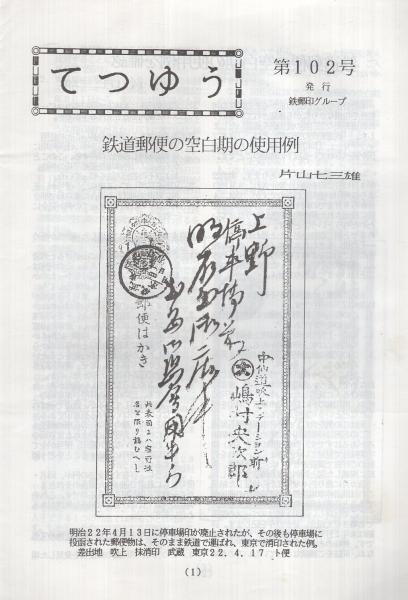 てつゆう
第102号
発行
鉄郵印グループ
鉄道郵便の空白期の使用例
片山七三雄
上野
停車場前
郵便はかき
中仙道吹上ステーション前
嶋村央次郎
明治22年4月13日に停車場印が廃止されたが、その後も停車場に
投函された郵便物は、そのまま鉄道で運ばれ、東京で消印された例。
差出地 吹上 抹消印 武蔵 東京22.4.17 ト便
(1)